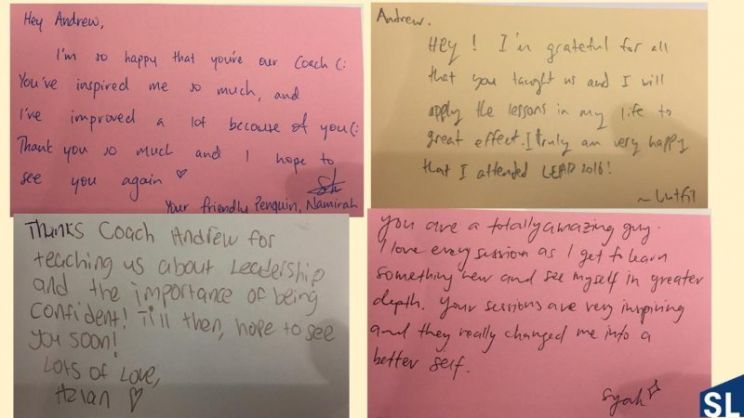 Hey Andrew,
I'm so happy that you're our Coach (:
You've inspired me so much, and
I've improved a lot because of you(:
Thank you so much and I hope to
see you again ♡
Your friendly Penguin, Namirah
Andrew.
Hey! I'm grateful for all
that you taught us and I will
apply the lessons in my life to
great effect. I truly am very happy
that I attended LEAD 2016!
~ Lutfil
Thanks Coach Andrew for
teaching us about Leadership
and the importance of being
confident! Till then, hope to see
you soon!
Lots of Love,
Azian ♡
you are a totally amazing guy.
I love every session as I get to learn
something new and see myself in greater
depth. Your sessions are very inspiring
and they really changed me into a
better self.
Syah
SL